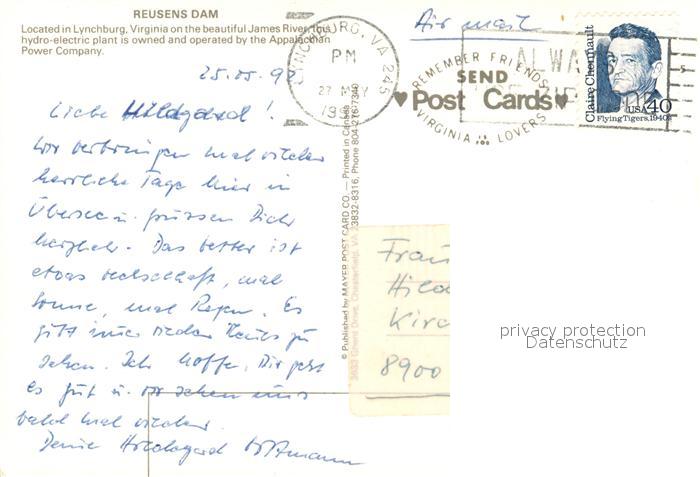 REUSENS DAM
Located in Lynchburg, Virginia on the beautiful James River, this
hydro-electric plant is owned and operated by the Appalachian
Power Company.
Air mail
LYNCHBURG, VA 245
PM
27 MAY
REMEMBER FRIENDS
SEND
Post Cards
VIRGINIA IS LOVERS
ALWAYS
Claire Chennault
USA 40
Flying Tigers, 1940s
25.05.92
Liebe Hildgard!
Wir verbringen mal wieder
herrliche Tage hier in
Übersee u. grüssen Dich
herzlich. Das Wetter ist
etwas wechselhaft, mal
Sonne, mal Regen. Es
gibt immer wieder Neues zu
sehen. Ich hoffe, Dir geht
es gut u. wir sehen uns
bald mal wieder.
Deine Hildegard
© Published by MAYER POST CARD CO. — Printed in Canada
3633 Ghent Drive, Chesterfield, VA 23832-8316, Phone 804-276-7340
Frau
Hild
Kirc
8900
privacy protection
Datenschutz